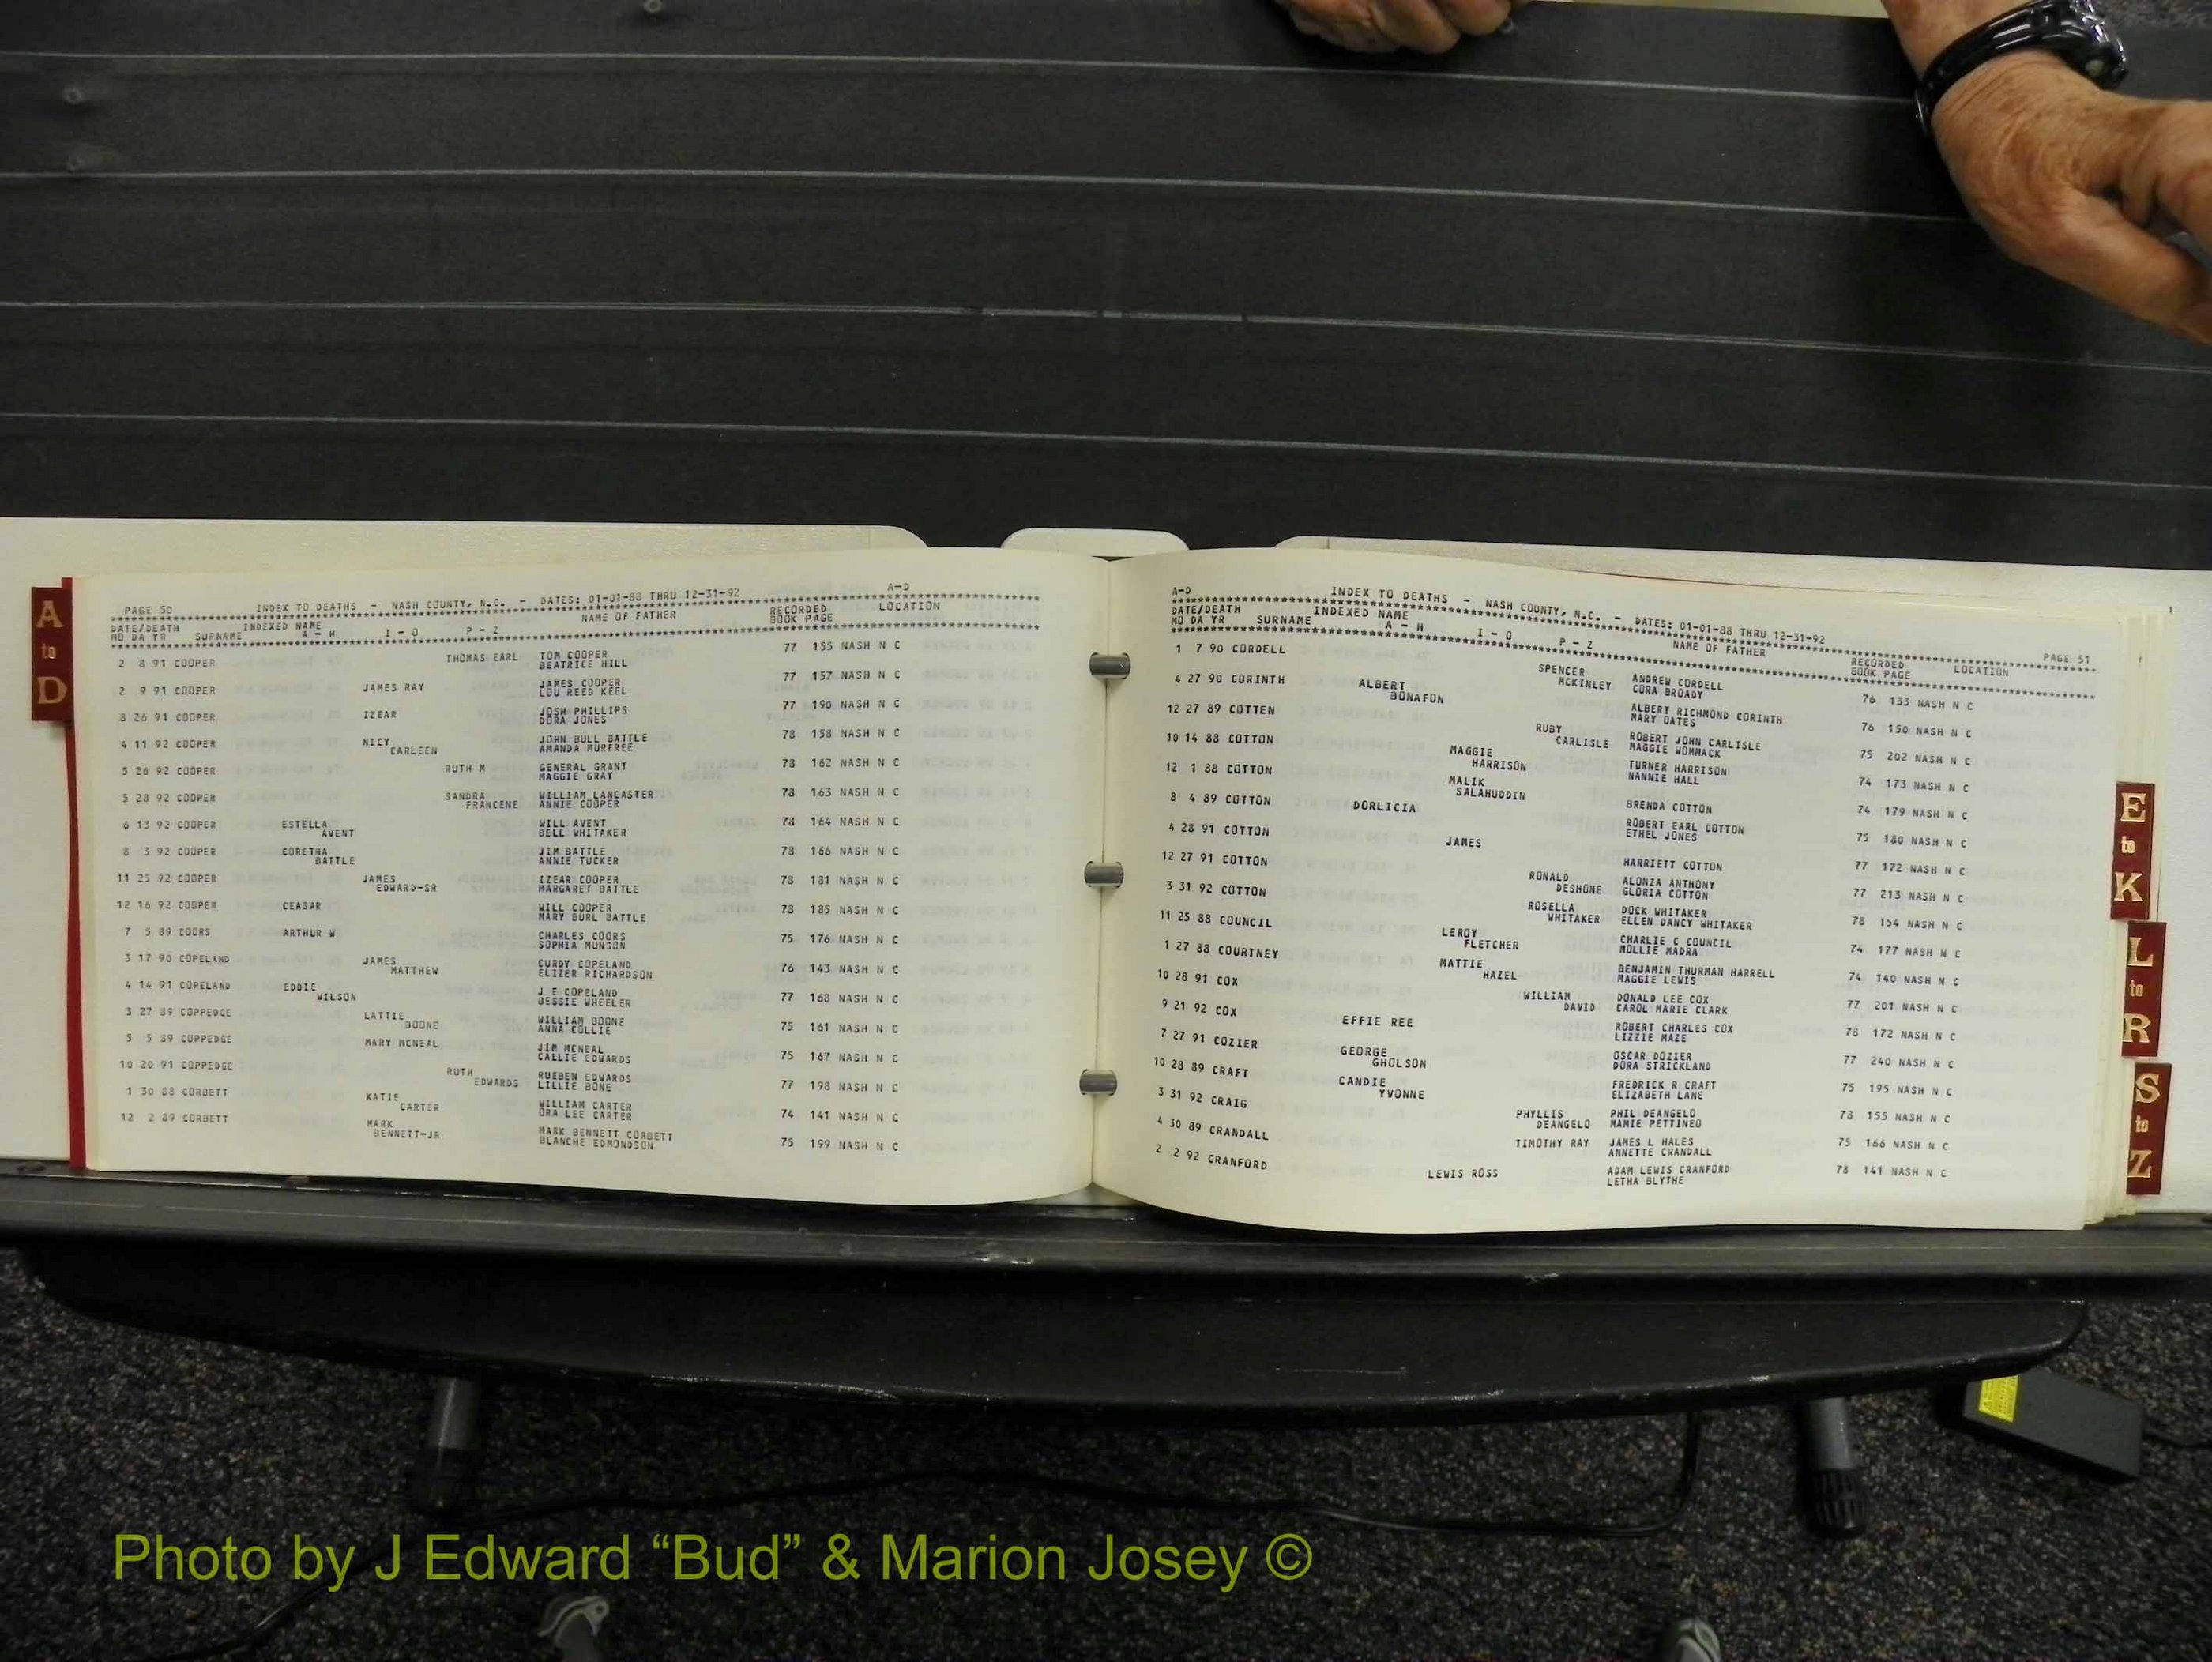 A
to
D
PAGE 50 INDEX TO DEATHS - NASH COUNTY, N.C. - DATES: 01-01-88 THRU 12-31-92 A-D
DATE/DEATH INDEXED NAME NAME OF FATHER RECORDED LOCATION
MO DA YR SURNAME A - H I - O P - Z BOOK PAGE
2 8 91 COOPER THOMAS EARL TOM COOPER 77 155 NASH N C
BEATRICE HILL
2 9 91 COOPER JAMES RAY JAMES COOPER 77 157 NASH N C
LOU REED KEEL
8 26 91 COOPER IZEAR JOSH PHILLIPS 77 190 NASH N C
DORA JONES
4 11 92 COOPER NICY JOHN BULL BATTLE 78 158 NASH N C
CARLEEN AMANDA MURFREE
5 26 92 COOPER RUTH M GENERAL GRANT 78 162 NASH N C
MAGGIE GRAY
5 28 92 COOPER SANDRA WILLIAM LANCASTER 78 163 NASH N C
FRANCENE ANNIE COOPER
6 13 92 COOPER ESTELLA WILL AVENT 78 164 NASH N C
AVENT BELL WHITAKER
8 3 92 COOPER CORETHA JIM BATTLE 78 166 NASH N C
BATTLE ANNIE TUCKER
11 25 92 COOPER JAMES IZEAR COOPER 78 181 NASH N C
EDWARD-SR MARGARET BATTLE
12 16 92 COOPER CEASAR WILL COOPER 78 185 NASH N C
MARY BURL BATTLE
7 5 89 COORS ARTHUR W CHARLES COORS 75 176 NASH N C
SOPHIA MUNSON
3 17 90 COPELAND JAMES CURDY COPELAND 76 143 NASH N C
MATTHEW ELIZER RICHARDSON
4 14 91 COPELAND EDDIE J E COPELAND 77 168 NASH N C
WILSON BESSIE WHEELER
3 27 89 COPPEDGE LATTIE WILLIAM BOONE 75 161 NASH N C
BOONE ANNA COLLIE
5 5 89 COPPEDGE MARY MCNEAL JIM MCNEAL 75 167 NASH N C
CALLIE EDWARDS
10 20 91 COPPEDGE RUTH RUEBEN EDWARDS 77 198 NASH N C
EDWARDS LILLIE BONE
1 30 88 CORBETT KATIE WILLIAM CARTER 74 141 NASH N C
CARTER ORA LEE CARTER
12 2 89 CORBETT MARK MARK BENNETT CORBETT 75 199 NASH N C
BENNETT-JR BLANCHE EDMONDSON
A-D INDEX TO DEATHS - NASH COUNTY, N.C. - DATES: 01-01-88 THRU 12-31-92 PAGE 51
DATE/DEATH INDEXED NAME NAME OF FATHER RECORDED LOCATION
MO DA YR SURNAME A - H I - O P - Z BOOK PAGE
1 7 90 CORDELL SPENCER ANDREW CORDELL 76 133 NASH N C
MCKINLEY CORA BROADY
4 27 90 CORINTH ALBERT ALBERT RICHMOND CORINTH 76 150 NASH N C
BONAFON MARY OATES
12 27 89 COTTEN RUBY ROBERT JOHN CARLISLE 75 202 NASH N C
CARLISLE MAGGIE WOMMACK
10 14 88 COTTON MAGGIE TURNER HARRISON 74 173 NASH N C
HARRISON NANNIE HALL
12 1 88 COTTON MALIK BRENDA COTTON 74 179 NASH N C
SALAHUDDIN
8 4 89 COTTON DORLICIA ROBERT EARL COTTON 75 180 NASH N C
ETHEL JONES
4 28 91 COTTON JAMES HARRIETT COTTON 77 172 NASH N C
12 27 91 COTTON RONALD ALONZA ANTHONY 77 213 NASH N C
DESHONE GLORIA COTTON
3 31 92 COTTON ROSELLA DOCK WHITAKER 78 154 NASH N C
WHITAKER ELLEN DANCY WHITAKER
11 25 88 COUNCIL LEROY CHARLIE C COUNCIL 74 177 NASH N C
FLETCHER MOLLIE MADRA
1 27 88 COURTNEY MATTIE BENJAMIN THURMAN HARRELL 74 140 NASH N C
HAZEL MAGGIE LEWIS
10 28 91 COX WILLIAM DONALD LEE COX 77 201 NASH N C
DAVID CAROL MARIE CLARK
9 21 92 COX EFFIE REE ROBERT CHARLES COX 78 172 NASH N C
LIZZIE MAZE
7 27 91 COZIER GEORGE OSCAR DOZIER 77 240 NASH N C
GHOLSON DORA STRICKLAND
10 28 89 CRAFT CANDIE FREDRICK R CRAFT 75 195 NASH N C
YVONNE ELIZABETH LANE
3 31 92 CRAIG PHYLLIS PHIL DEANGELO 78 155 NASH N C
DEANGELO MAMIE PETTINEO
4 30 89 CRANDALL TIMOTHY RAY JAMES L HALES 75 166 NASH N C
ANNETTE CRANDALL
2 2 92 CRANFORD LEWIS ROSS ADAM LEWIS CRANFORD 78 141 NASH N C
LETHA BLYTHE
E
to
K
L
to
R
S
to
Z
Photo by J Edward “Bud” & Marion Josey ©